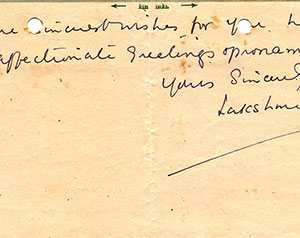 sincerest wishes for you
affectionate greetings
Yours Sincerel
Lakshm